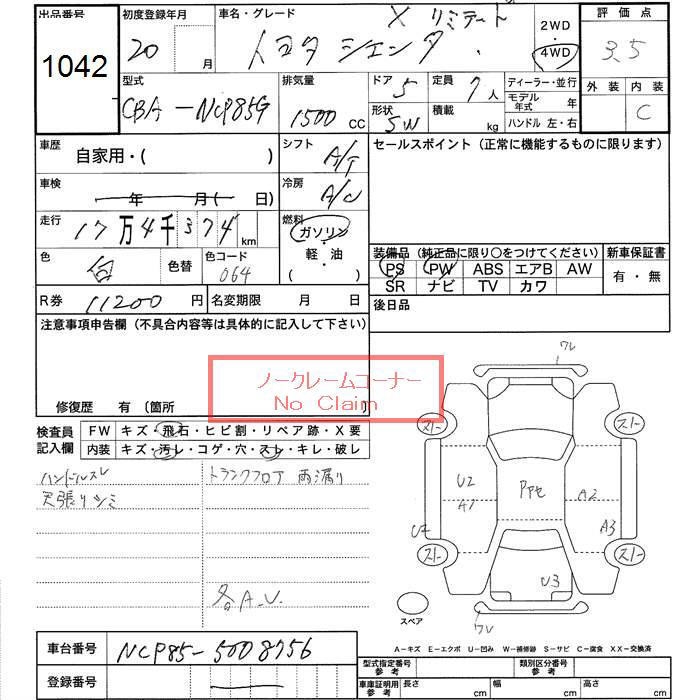 出品番号
1042
初度登録年月
20 月
車名・グレード
X リミテート
トヨタ シエンタ
2WD
4WD
評価点
3.5
型式
CBA-NCP85G
排気量
1500 CC
ドア 5
定員 7 人
形状 SW
積載 kg
ディーラー・並行
モデル年式 年
ハンドル 左・右
外装 内装
C
車歴
自家用・( )
シフト A/T
車検
年 月( 日)
冷房 A/C
走行
17万4千374 km
燃料
ガソリン
・
軽・油
( )
色 白
色替
色コード 064
R券 11200 円
名変期限 月 日
セールスポイント(正常に機能するものに限ります)
装備品(純正品に限り○をつけてください)
新車保証書
PS PW ABS エアB AW
SR ナビ TV カワ
有・無
後日品
注意事項申告欄(不具合内容等は具体的に記入して下さい)
ノークレームコーナー
No Claim
修復歴 有(箇所 )
検査員記入欄
FW キズ・飛石・ヒビ割・リペア跡・X要
内装 キズ・汚レ・コゲ・穴・スレ・キレ・破レ
ハンドルスレ
天張りシミ
トランクフロア 雨漏り
各A.U.
ワレ
スト スト
U2
A1
PPte
A2
A3
U2
スト スト
U3
ワレ
スペア
A-キズ E-エクボ U-凹み W-補修跡 S-サビ C-腐食 XX-交換済
車台番号
NCP85-5008756
登録番号
型式指定番号 参考
類別区分番号 参考
車庫証明用 参考
長さ cm
幅 cm
高さ cm